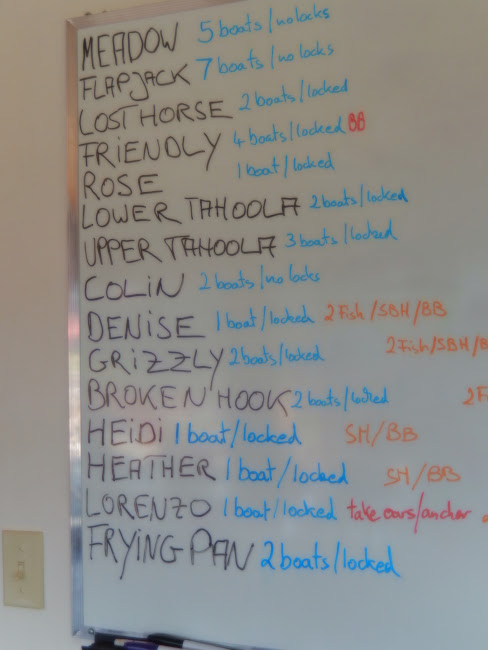 MEADOW 5 boats/no locks
FLAPJACK 7 boats/no locks
LOST HORSE 2 boats/locked
FRIENDLY 4 boats/locked BB
ROSE 1 boat/locked
LOWER TAHOOLA 2 boats/locked
UPPER TAHOOLA 3 boats/locked
COLIN 2 boats/no locks
DENISE 1 boat/locked 2 Fish/SBH/BB
GRIZZLY 2 boats/locked 2 Fish/SBH/B
BROKEN HOOK 2 boats/locked 2 F
HEIDI 1 boat/locked SH/BB
HEATHER 1 boat/locked SH/BB
LORENZO 1 boat/locked take oars/anchor
FRYING PAN 2 boats/locked